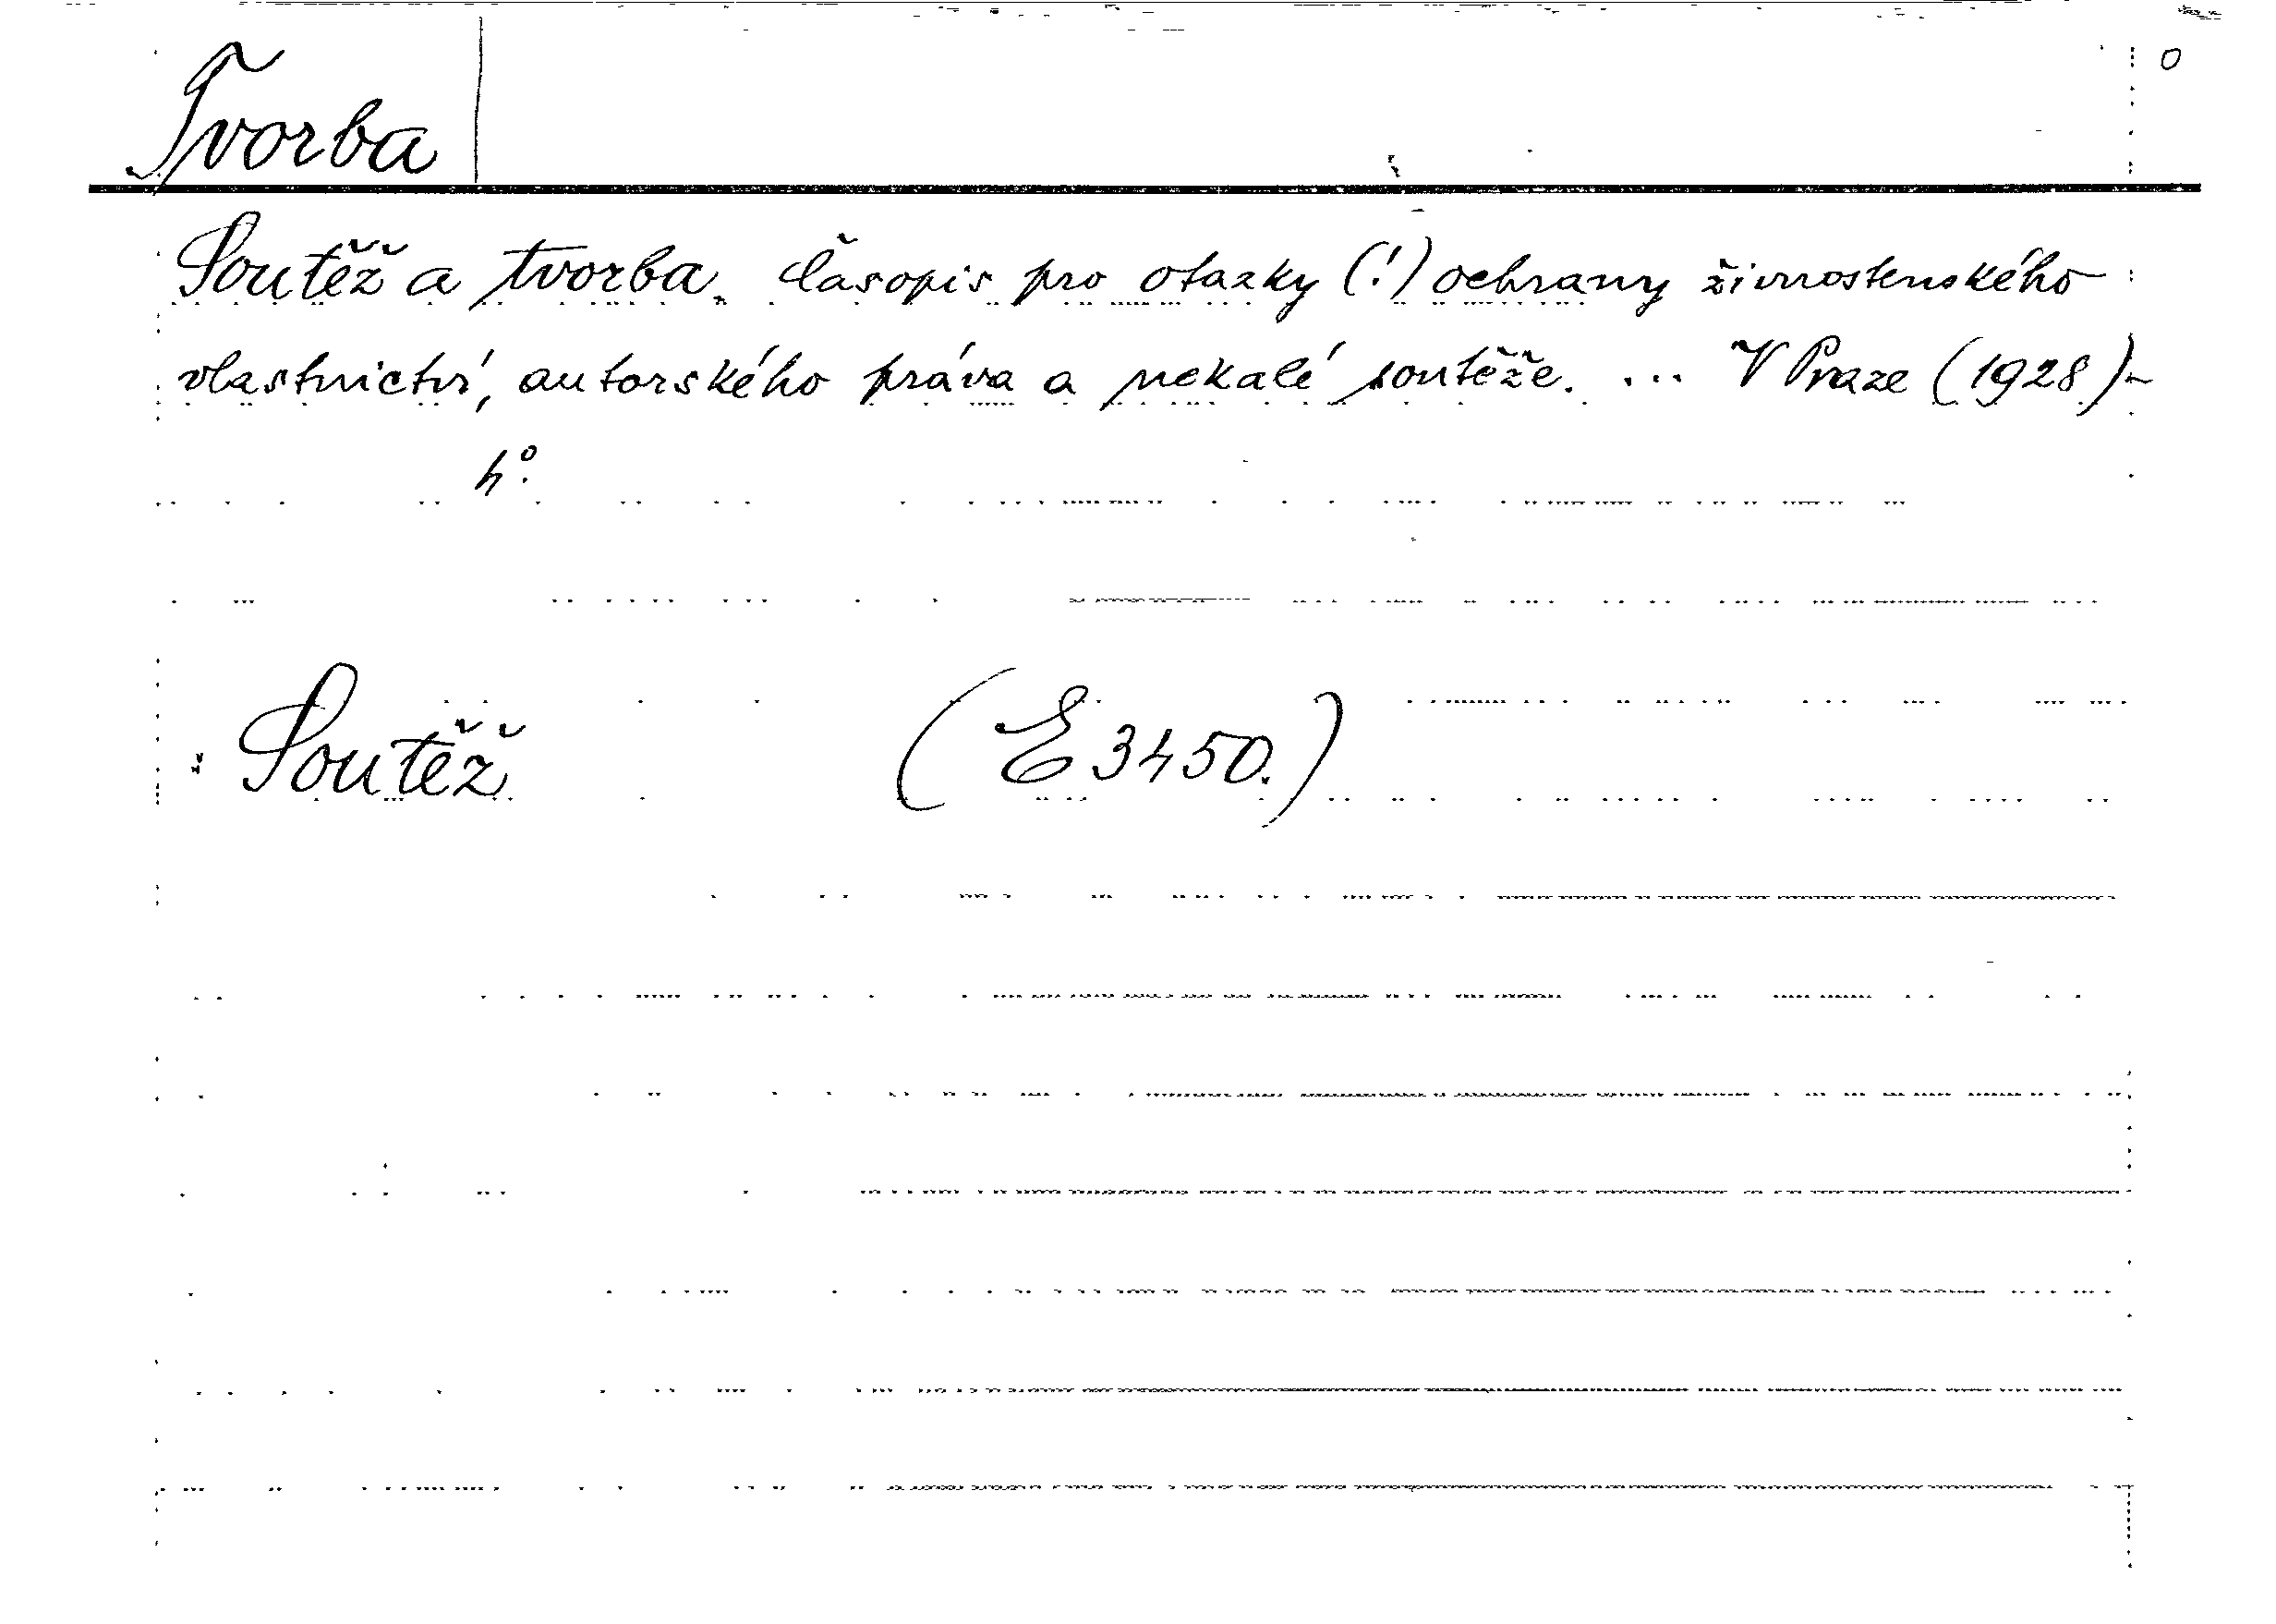 Tvorba
0
Soutěž a tvorba. Časopis pro otazky (!) ochrany živnostenského
vlastnictví, autorského práva a nekalé soutěže. ... V Praze (1928)-
4º.
: Soutěž (E 3450.)